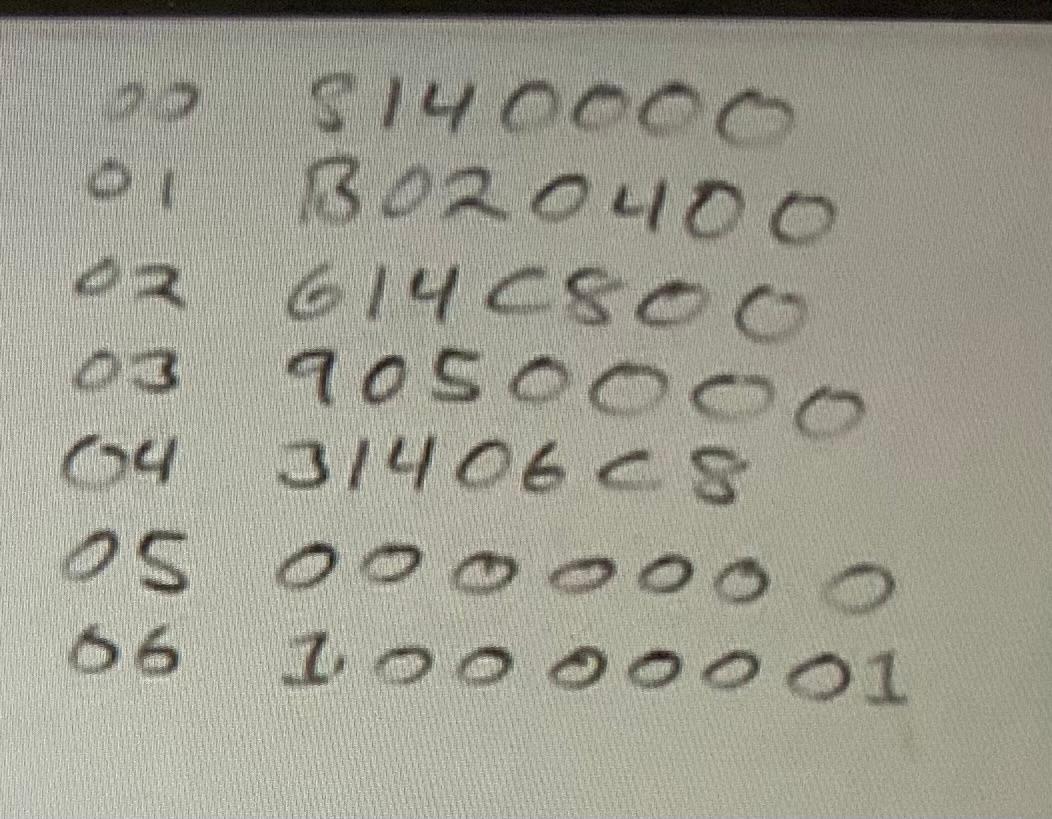 00 8140000
01 B020400
02 614C800
03 9050000
04 31406C8
05 0000000
06 10000001